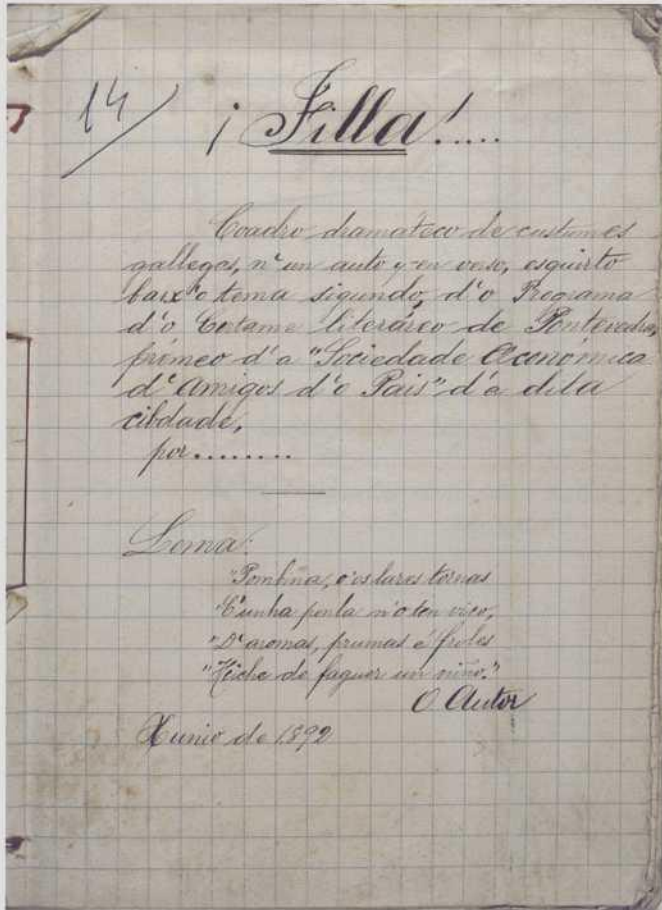 14
¡Filla!.....
Coadro dramáteco de custumes
gallegos, n'un auto y-en verso, esquirto
baix'o tema sigundo, d'o Programa
d'o Certame literáreo de Pontevedra,
prémeo d'a "Sociedade Económica
d'Amigos d'o Pais" d'a dita
cibdade,
por........
Lema:
"Pombiña, ó os lares tornas
"C'unha ponla n'o teu vico,
"D'aromas, prumas é froles
"Heiche de faguer un niño."
O Autor
Xunio de 1892